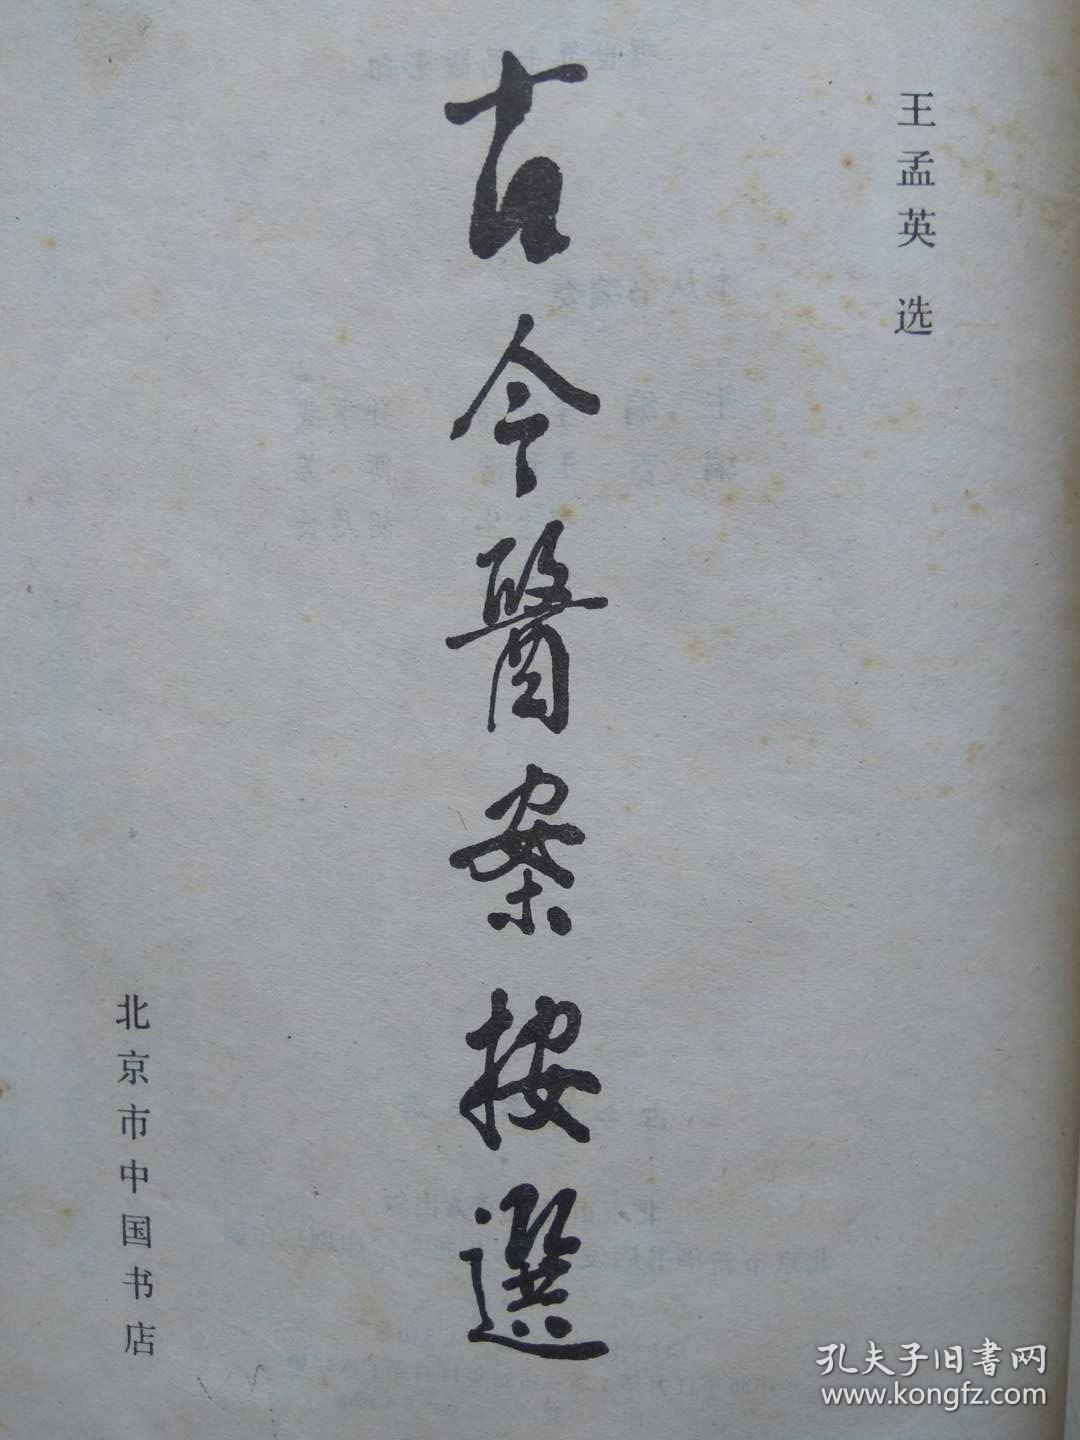 王孟英 选
古今醫案按選
北京市中国书店
孔夫子旧书网
www.kongfz.com